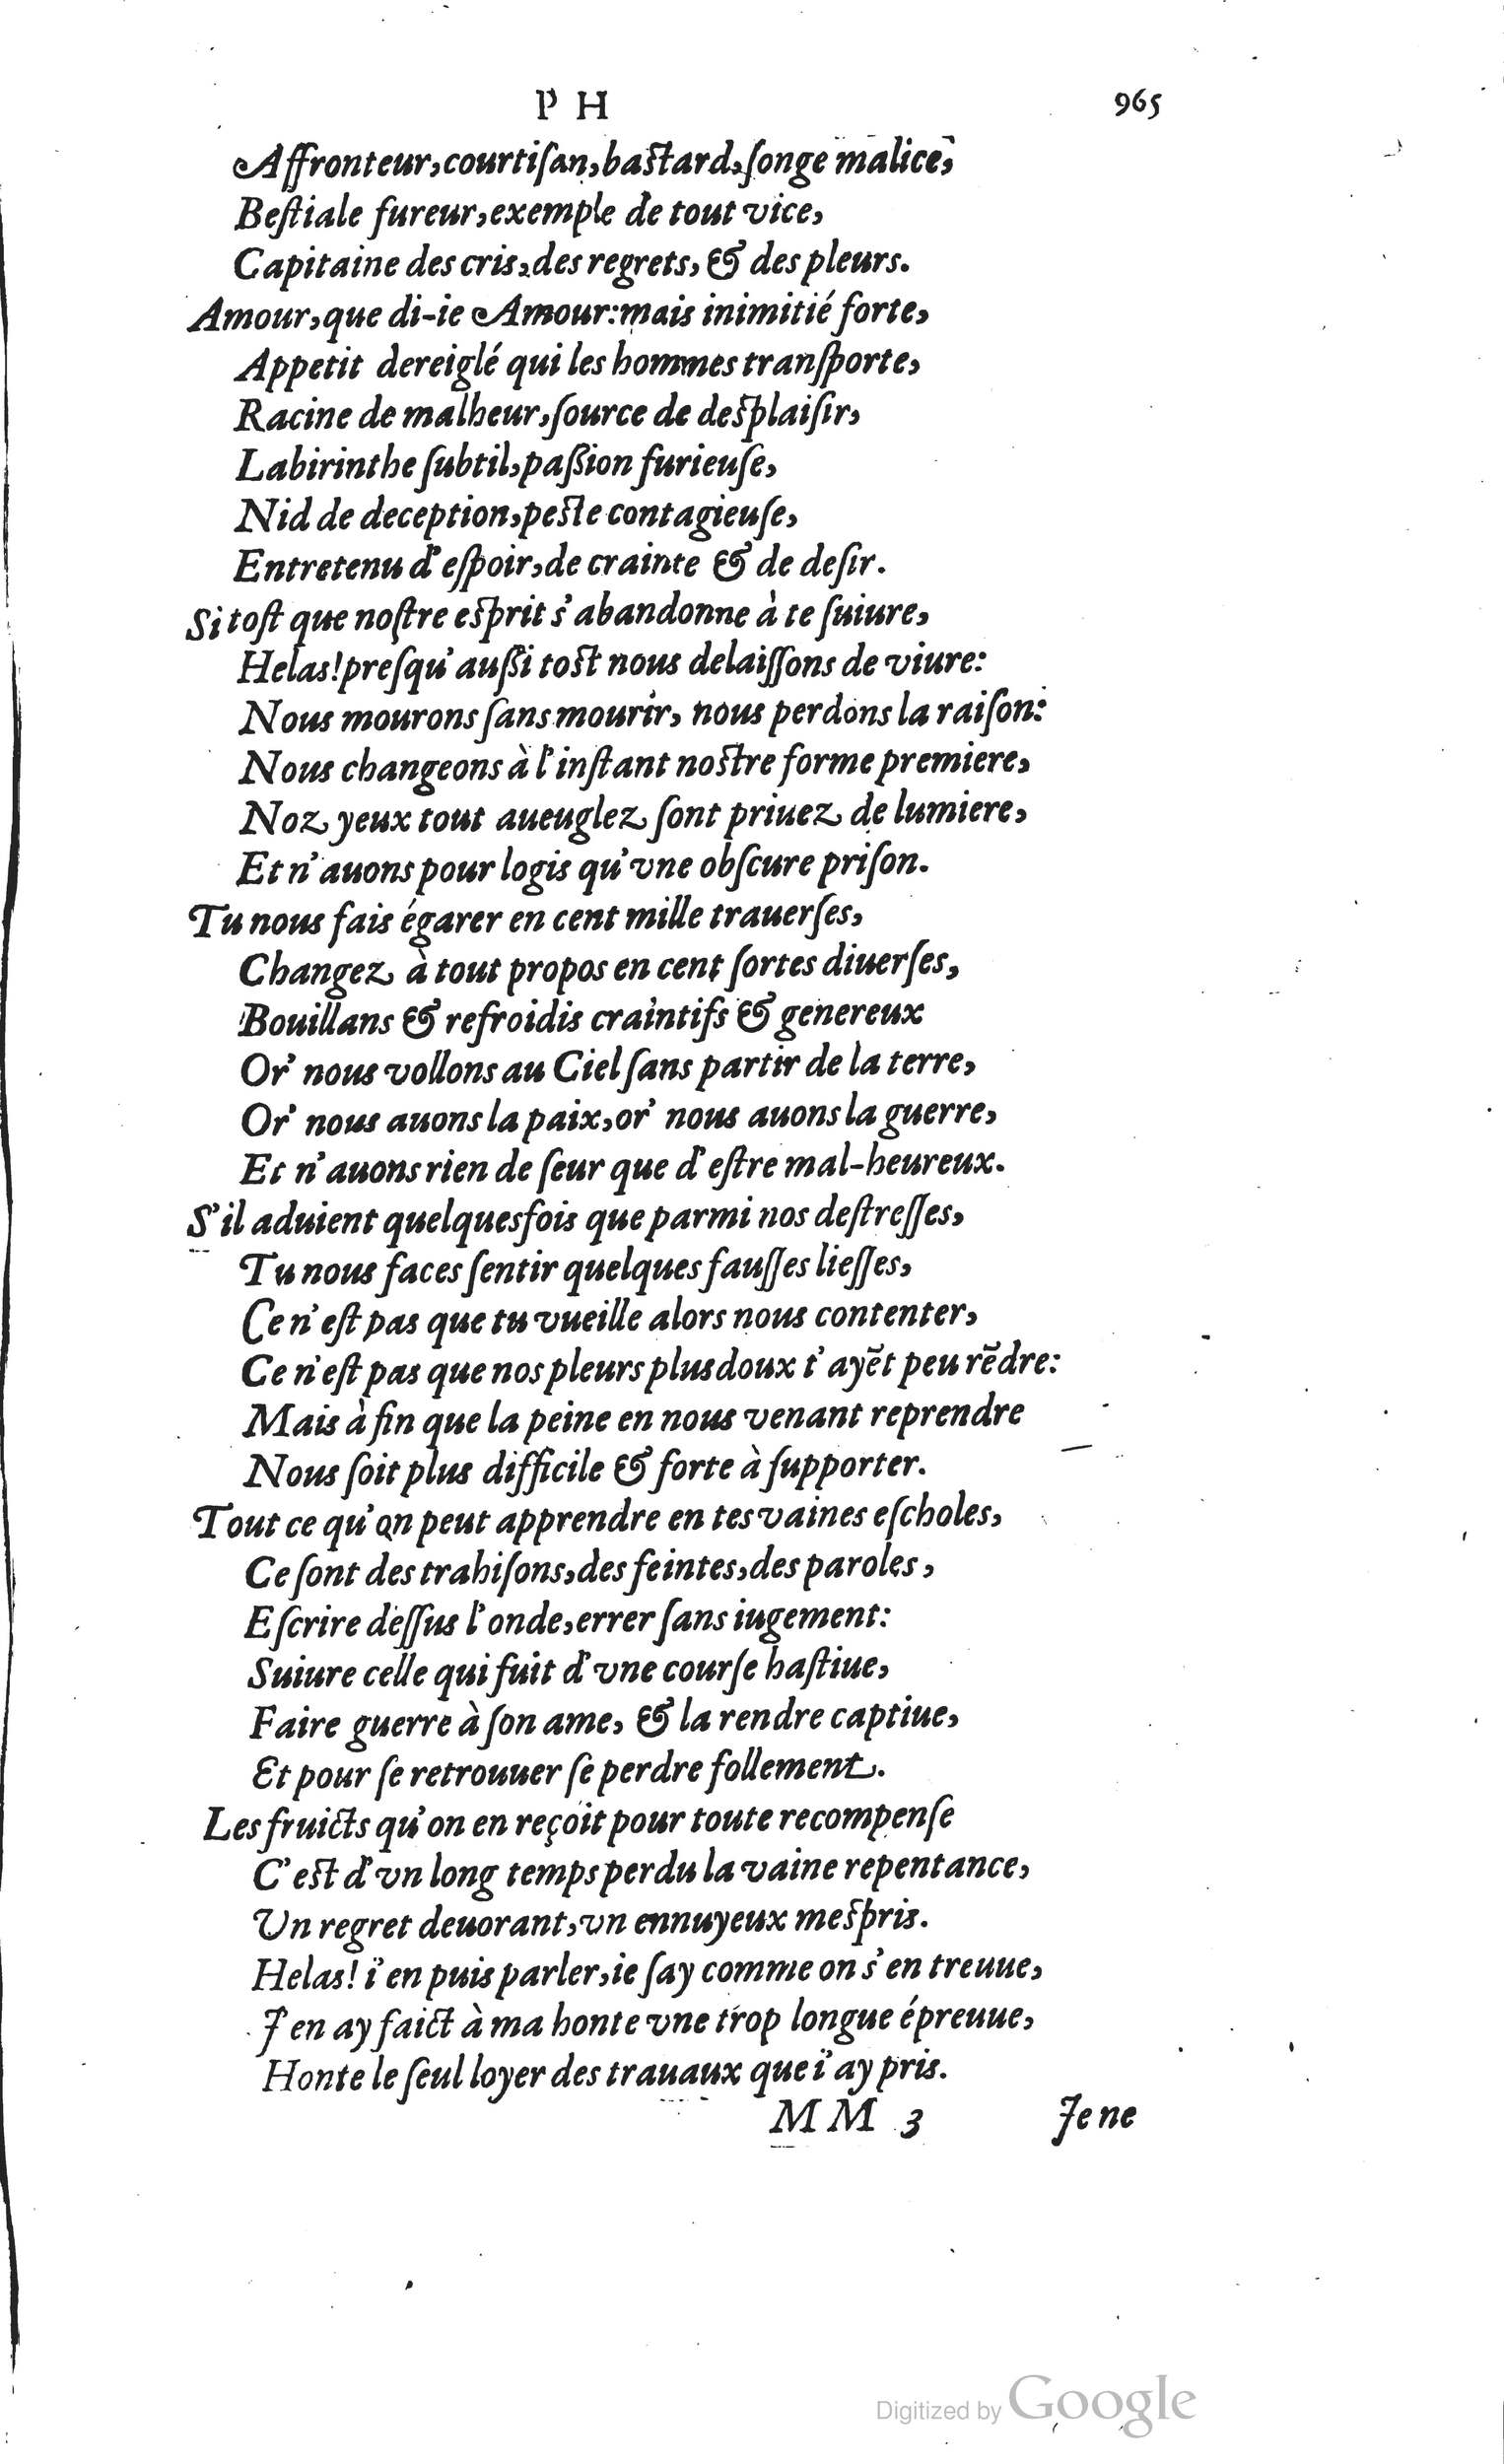 P H 965
Affronteur, courtiſan, baſtard, ſonge malice,
Beſtiale fureur, exemple de tout vice,
Capitaine des cris, des regrets, & des pleurs.
Amour, que di-ie Amour: mais inimitié forte,
Appetit dereiglé qui les hommes tranſporte,
Racine de malheur, ſource de deſplaiſir,
Labirinthe ſubtil, paſſion furieuſe,
Nid de deception, peſte contagieuſe,
Entretenu d'eſpoir, de crainte & de deſir.
Si toſt que noſtre eſprit s'abandonne à te ſuiure,
Helas! preſqu'auſſi toſt nous delaiſſons de viure:
Nous mourons ſans mourir, nous perdons la raiſon:
Nous changeons à l'inſtant noſtre forme premiere,
Noz yeux tout aueuglez ſont priuez de lumiere,
Et n'auons pour logis qu'vne obſcure priſon.
Tu nous fais égarer en cent mille trauerſes,
Changez à tout propos en cent ſortes diuerſes,
Bouillans & refroidis craintifs & genereux
Or' nous vollons au Ciel ſans partir de la terre,
Or' nous auons la paix, or' nous auons la guerre,
Et n'auons rien de ſeur que d'eſtre mal-heureux.
S'il aduient quelquesfois que parmi nos deſtreſſes,
Tu nous faces ſentir quelques fauſſes lieſſes,
Ce n'eſt pas que tu vueille alors nous contenter,
Ce n'eſt pas que nos pleurs plus doux t'ayẽt peu rẽdre:
Mais à fin que la peine en nous venant reprendre
Nous ſoit plus difficile & forte à ſupporter.
Tout ce qu'on peut apprendre en tes vaines eſcholes,
Ce ſont des trahiſons, des feintes, des paroles,
Eſcrire deſſus l'onde, errer ſans iugement:
Suiure celle qui fuit d'vne courſe haſtiue,
Faire guerre à ſon ame, & la rendre captiue,
Et pour ſe retrouuer ſe perdre follement.
Les fruicts qu'on en reçoit pour toute recompenſe
C'eſt d'vn long temps perdu la vaine repentance,
Vn regret deuorant, vn ennuyeux meſpris.
Helas! i'en puis parler, ie ſay comme on s'en treuue,
J'en ay faict à ma honte vne trop longue épreuue,
Honte le ſeul loyer des trauaux que i'ay pris.
MM 3 Je ne
Digitized by Google